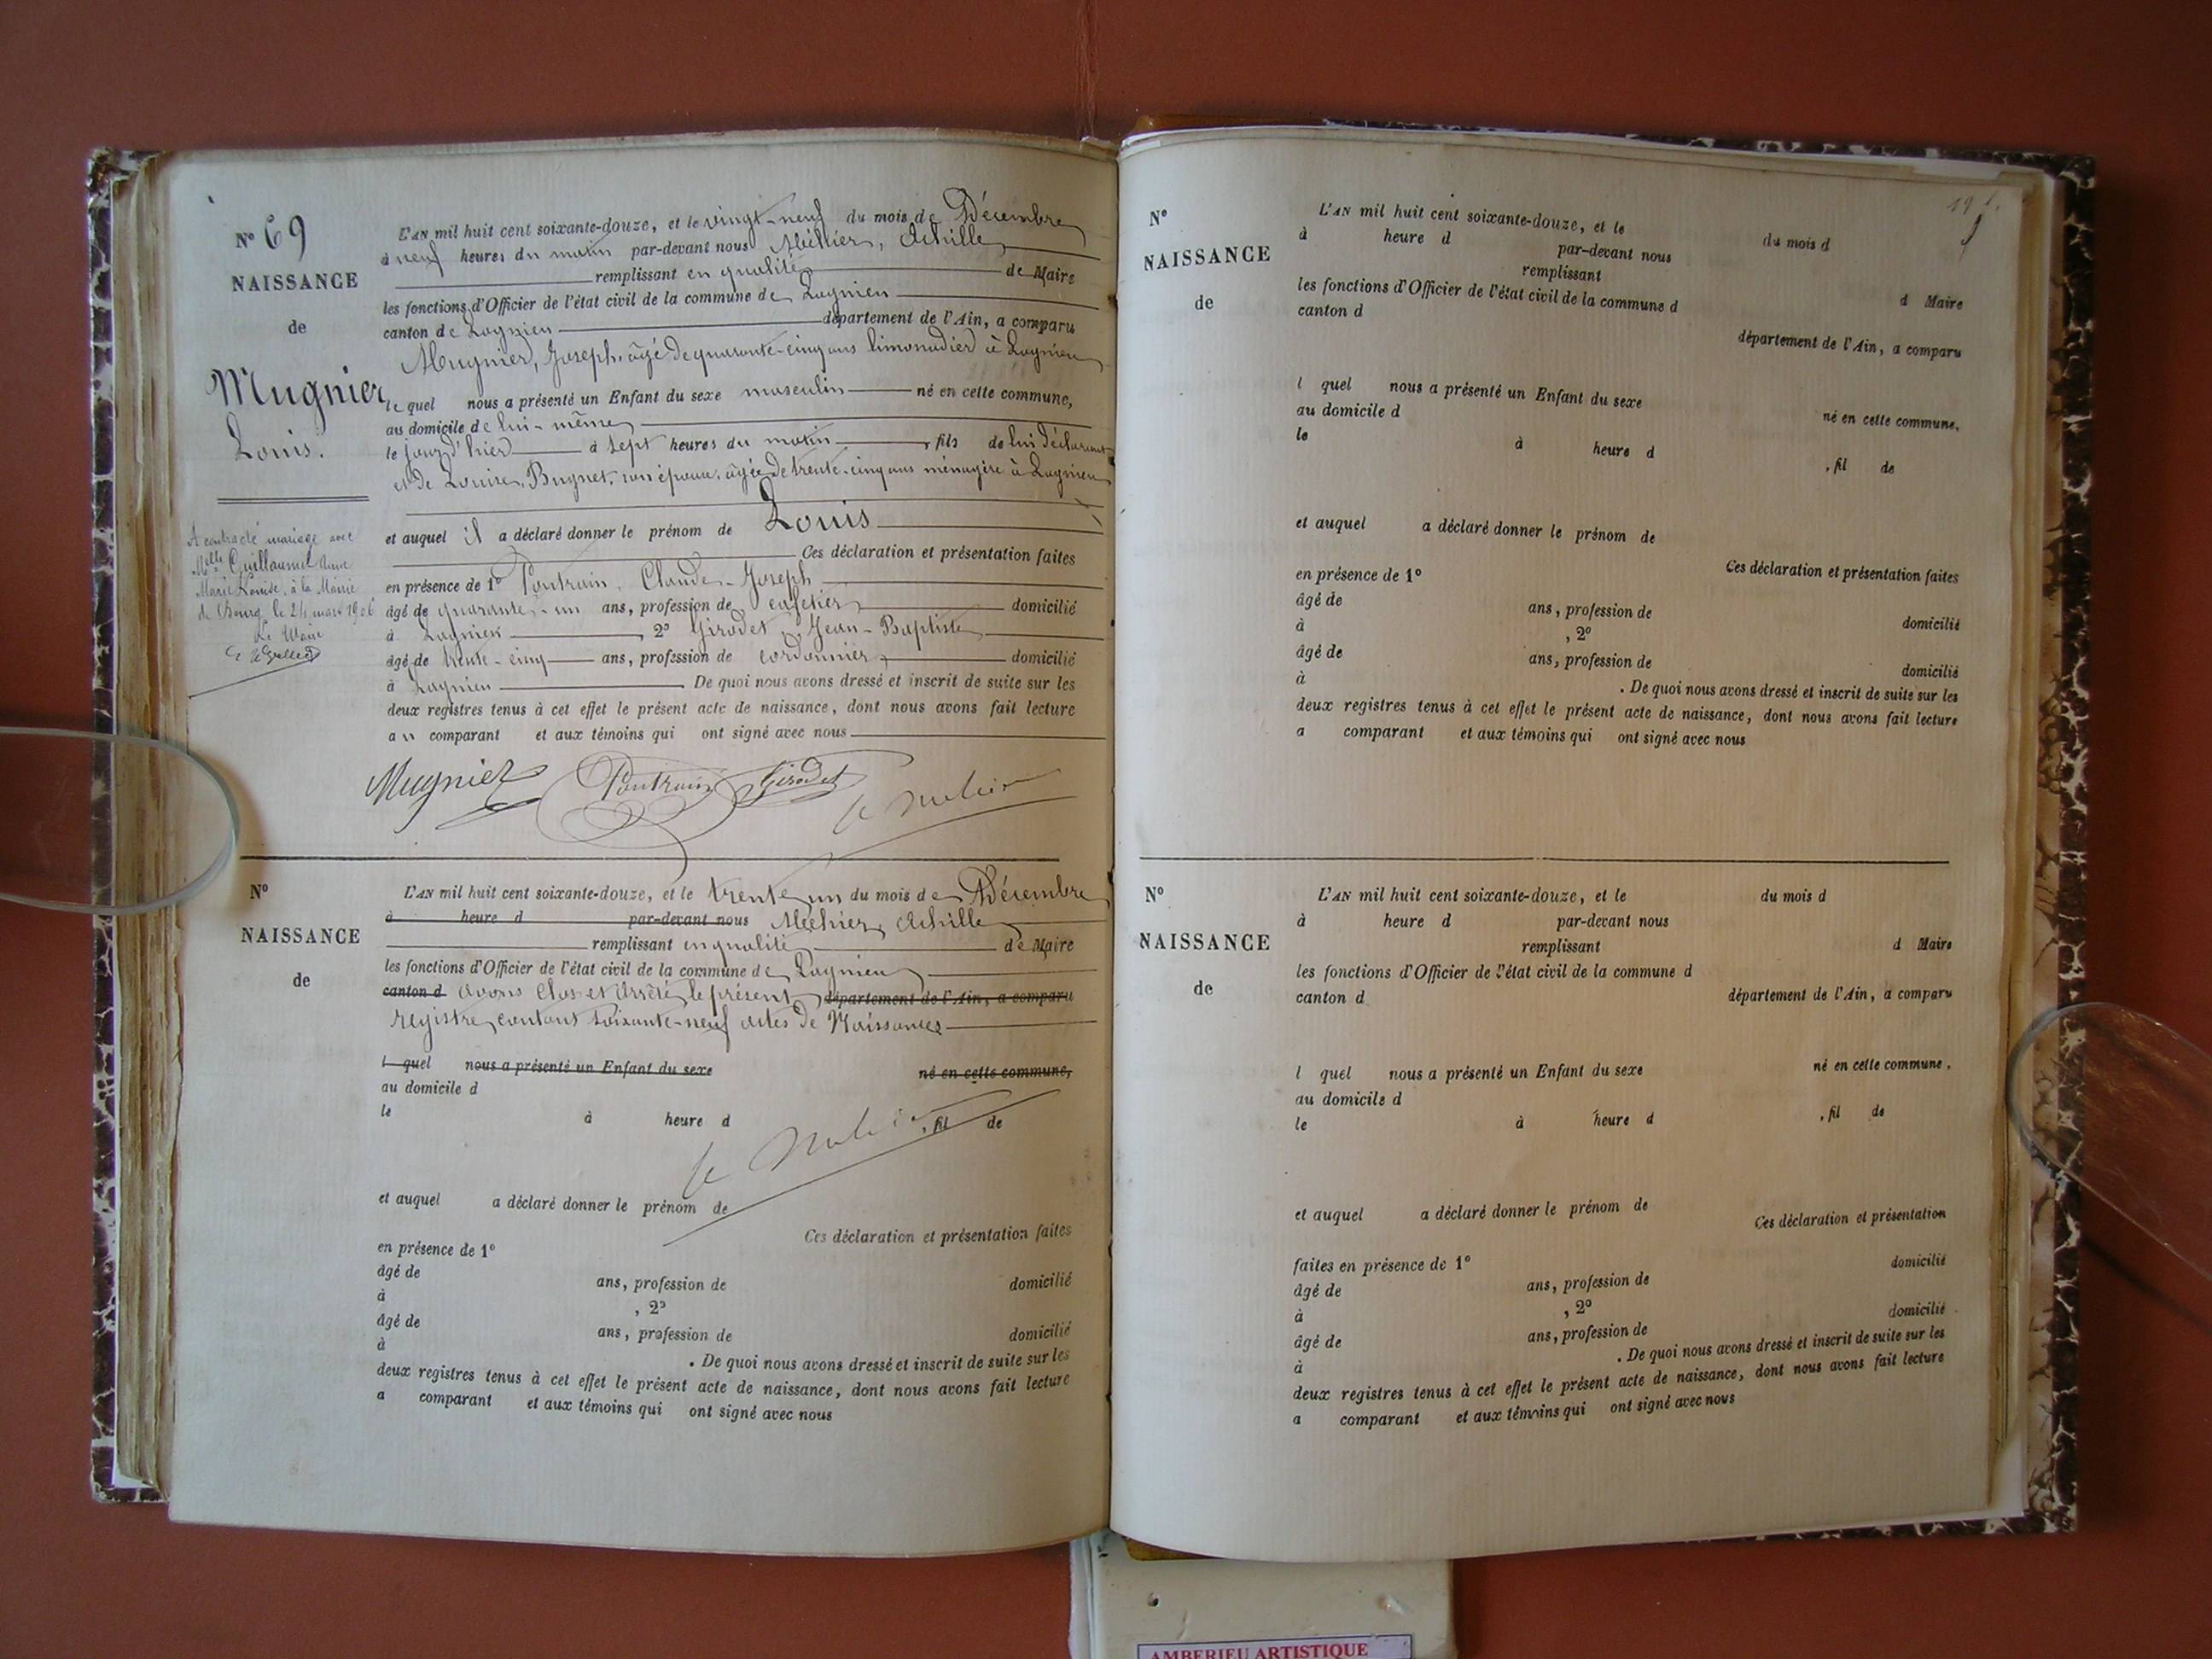 N° 69
NAISSANCE
de
Mugnier
Louis.
A contracté mariage avec
Melle Guillaumel Anne
Marie Louise, à la Mairie
de Bourg, le 24 mars 1906
Le Maire
L'AN mil huit cent soixante-douze, et le vingt-neuf du mois de Décembre
à neuf heures du matin par-devant nous Méhier, Achille
remplissant en qualité de Maire
les fonctions d'Officier de l'état civil de la commune de Lagnieu
canton de Lagnieu département de l'Ain, a comparu
Mugnier, Joseph, âgé de quarante-cinq ans limonadier à Lagnieu
le quel nous a présenté un Enfant du sexe masculin né en cette commune,
au domicile de lui-même
le jour d'hier à sept heures du matin, fils de lui déclarant
et de Louise, Bugnet, son épouse, âgée de trente-cinq ans ménagère à Lagnieu
et auquel il a déclaré donner le prénom de Louis
Ces déclaration et présentation faites
en présence de 1° Pontrain, Claude-Joseph
âgé de quarante-un ans, profession de cafetier domicilié
à Lagnieu, 2° Girodet, Jean-Baptiste
âgé de trente-cinq ans, profession de cordonnier, domicilié
à Lagnieu. De quoi nous avons dressé et inscrit de suite sur les
deux registres tenus à cet effet le présent acte de naissance, dont nous avons fait lecture
au comparant et aux témoins qui ont signé avec nous
Mugnier Pontrain Girodet
N°
NAISSANCE
de
L'AN mil huit cent soixante-douze, et le trente un du mois de Décembre
à heure d par-devant nous Méhier, Achille
remplissant en qualité de Maire
les fonctions d'Officier de l'état civil de la commune de Lagnieu
canton d avons clos et arrêté le présent département de l'Ain, a comparu
registre contenant soixante-neuf actes de Naissances
l quel nous a présenté un Enfant du sexe né en cette commune,
au domicile d
le à heure d , fil de
et auquel a déclaré donner le prénom de
Ces déclaration et présentation faites
en présence de 1°
âgé de ans, profession de domicilié
à , 2°
âgé de ans, profession de domicilié
à . De quoi nous avons dressé et inscrit de suite sur les
deux registres tenus à cet effet le présent acte de naissance, dont nous avons fait lecture
a comparant et aux témoins qui ont signé avec nous
N°
NAISSANCE
de
L'AN mil huit cent soixante-douze, et le du mois d
à heure d par-devant nous
remplissant d Maire
les fonctions d'Officier de l'état civil de la commune d
canton d département de l'Ain, a comparu
l quel nous a présenté un Enfant du sexe né en cette commune,
au domicile d
le à heure d , fil de
et auquel a déclaré donner le prénom de
Ces déclaration et présentation faites
en présence de 1°
âgé de ans, profession de domicilié
à , 2°
âgé de ans, profession de domicilié
à . De quoi nous avons dressé et inscrit de suite sur les
deux registres tenus à cet effet le présent acte de naissance, dont nous avons fait lecture
a comparant et aux témoins qui ont signé avec nous
N°
NAISSANCE
de
L'AN mil huit cent soixante-douze, et le du mois d
à heure d par-devant nous
remplissant d Maire
les fonctions d'Officier de l'état civil de la commune d
canton d département de l'Ain, a comparu
l quel nous a présenté un Enfant du sexe né en cette commune,
au domicile d
le à heure d , fil de
et auquel a déclaré donner le prénom de
Ces déclaration et présentation
faites en présence de 1°
âgé de ans, profession de domicilié
à , 2°
âgé de ans, profession de domicilié
à . De quoi nous avons dressé et inscrit de suite sur les
deux registres tenus à cet effet le présent acte de naissance, dont nous avons fait lecture
a comparant et aux témoins qui ont signé avec nous
AMBERIEU ARTISTIQUE